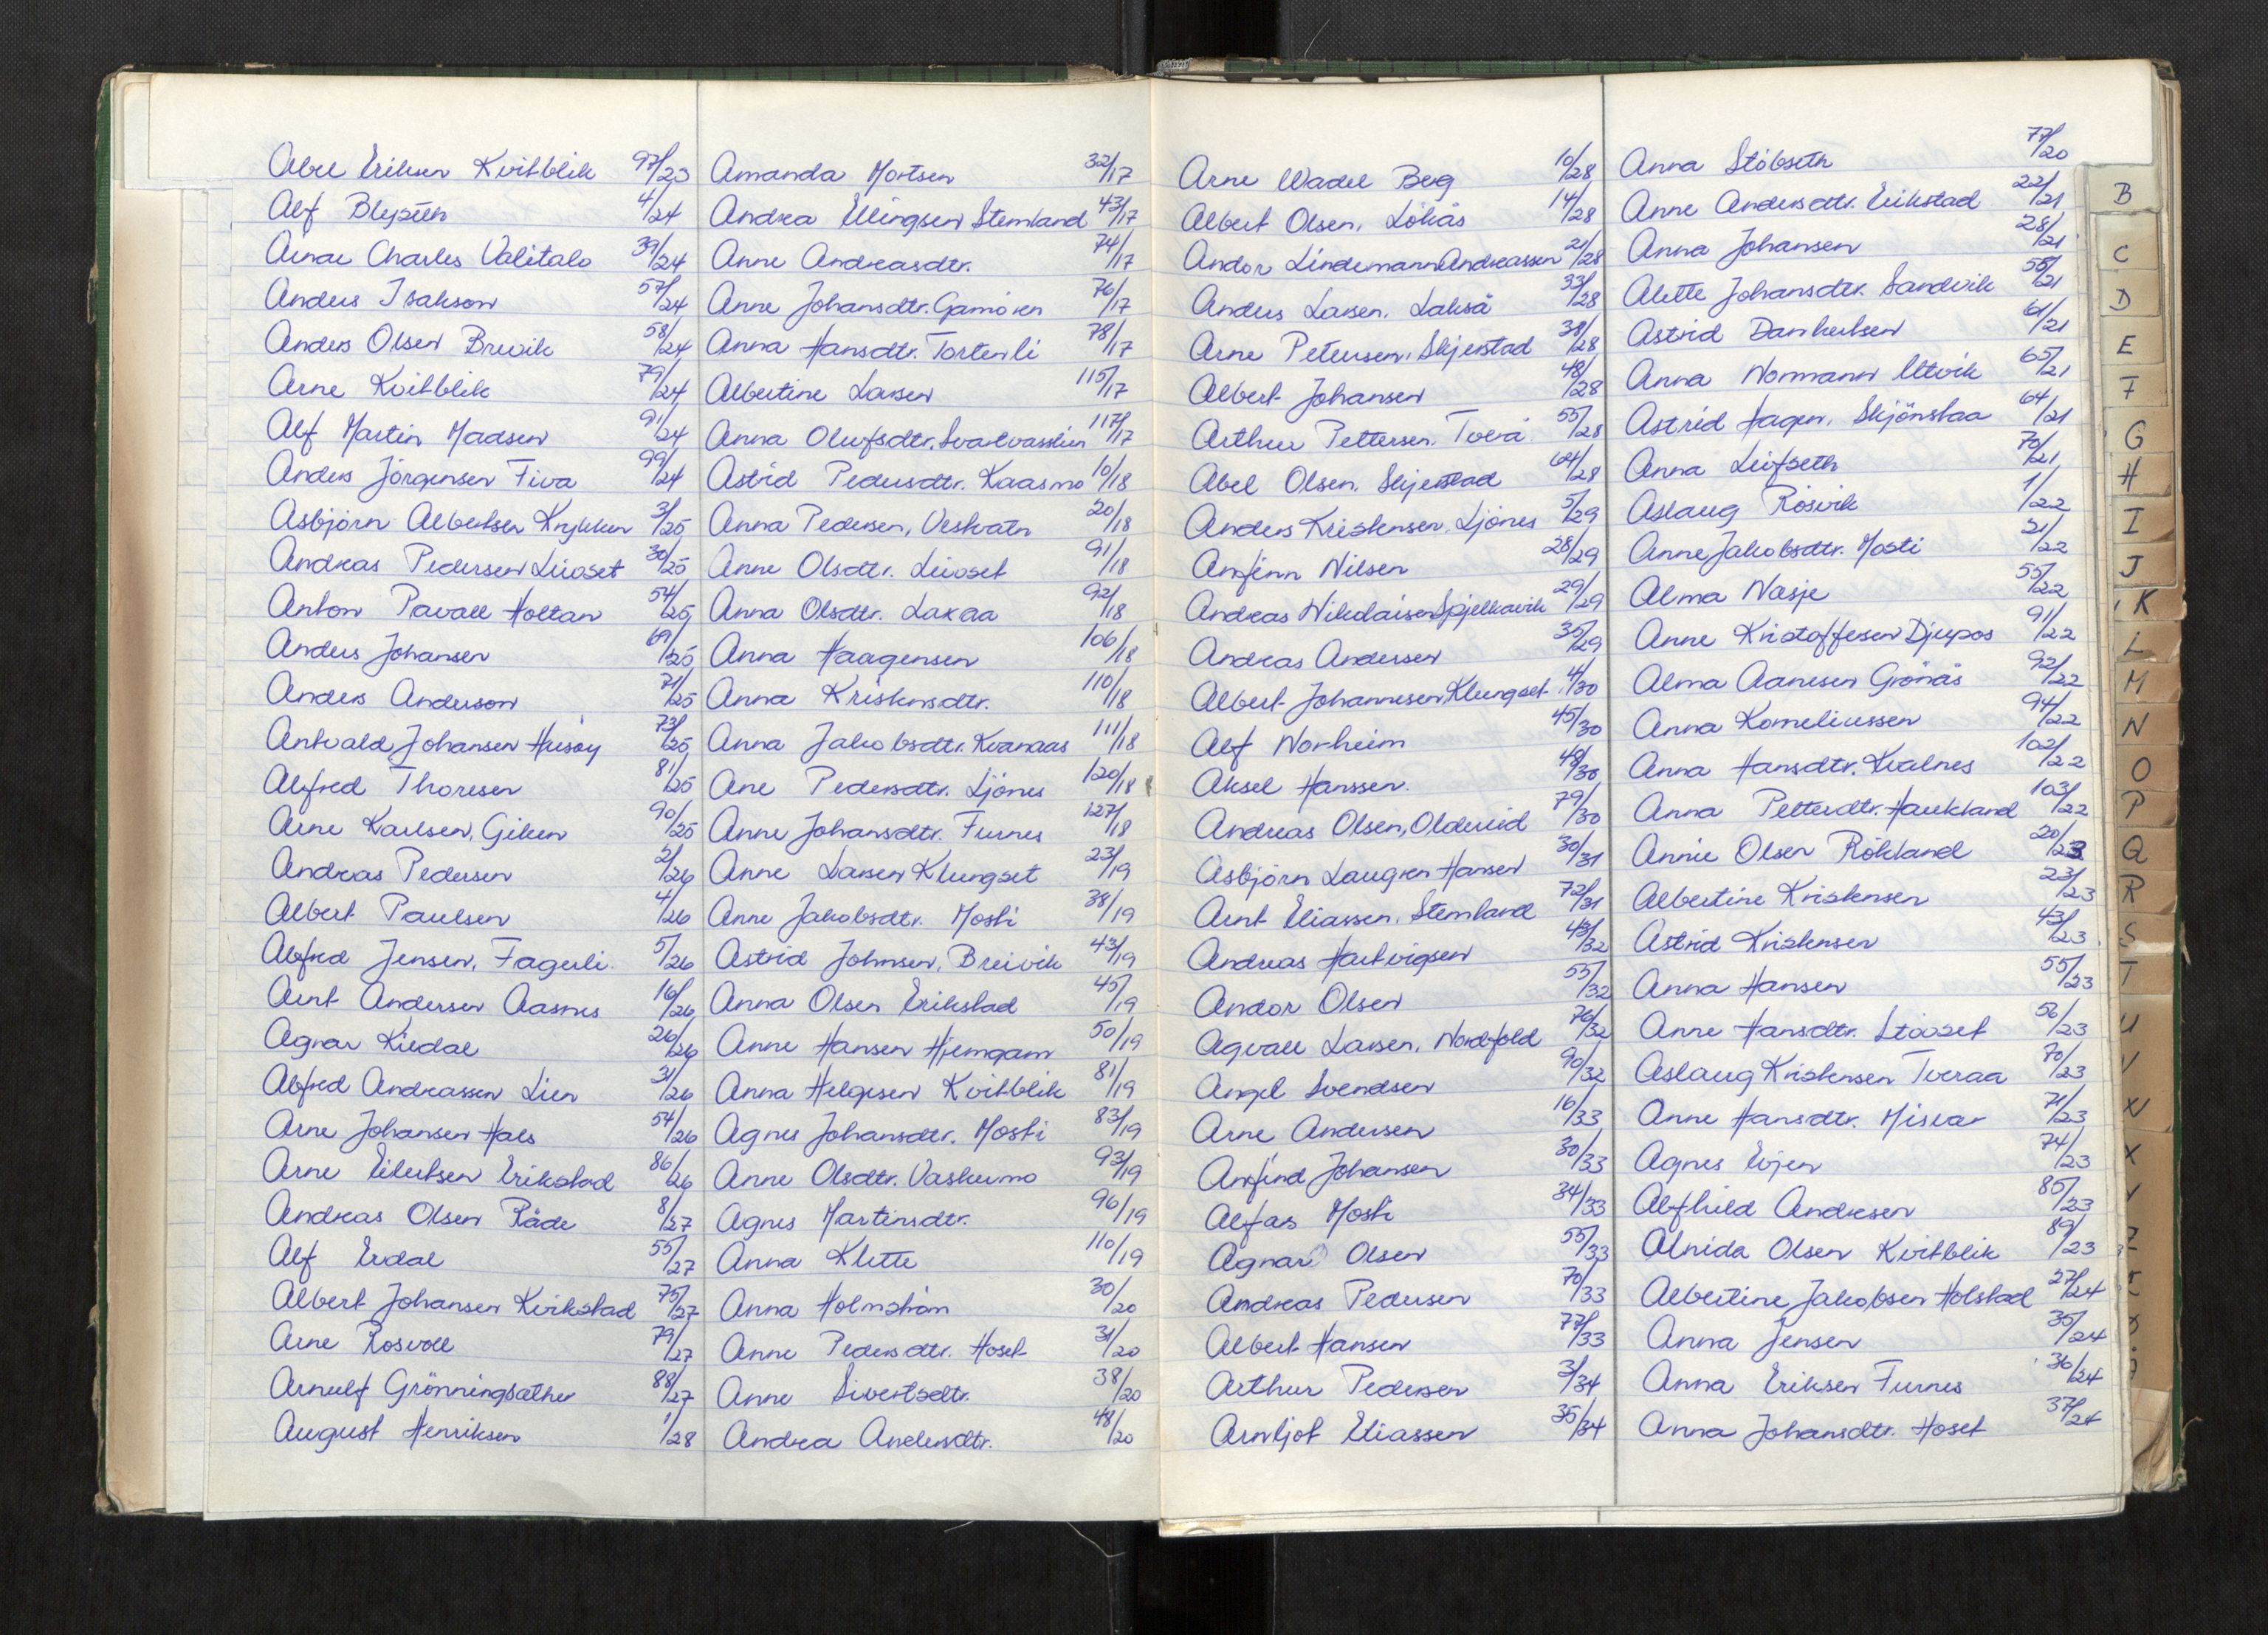 Abel Eriksen Kvitblik 97/23
Alf Blyseth 4/24
Arnar Charles Valitalo 39/24
Anders Isakson 57/24
Anders Olsen Brevik 58/24
Arne Kvitblik 79/24
Alf Martin Madsen 91/24
Anders Jörgensen Fiva 99/24
Asbjörn Albertsen 3/25
Andreas Pedersen Livoset 30/25
Anton Pavall Holtan 54/25
Anders Johansen 69/25
Anders Anderson 71/25
Antvald Johansen Husøy 73/25
Alfred Thoresen 81/25
Arne Karlsen, Gilsen 90/25
Andreas Pedersen 2/26
Albert Paulsen 4/26
Alfred Jensen, Fagerli 5/26
Arnt Andersen Aasnes 16/26
Agnar Kildal 26/26
Alfred Andreassen Lien 31/26
Arne Johansen Hals 54/26
Arne Eilertsen Erikstad 86/26
Andreas Olsen Råde 8/27
Alf Evdal 55/27
Albert Johansen Kirkstad 75/27
Arne Rosvoll 79/27
Arnulf Grönningsæther 88/27
August Henriksen 1/28
Amanda Mortsen 32/17
Andrea Ellingsen Stemland 43/17
Anne Andreasdtr. 74/17
Anne Johansdtr. Gamoien 76/17
Anna Hansdtr. Tortenli 78/17
Albertine Larsen 115/17
Anna Olufsdtr. Svartvasslien 117/17
Astrid Pedersdtr. Kaasmo 10/18
Anna Pedersen, Vestvatn 20/18
Anne Olsdtr. Livoset 91/18
Anna Olsdtr. Laxaa 92/18
Anna Haagensen 106/18
Anna Kristensdtr. 110/18
Anna Jakobsdtr. Kvanaas 111/18
Ane Pedersdtr. Ljönes 120/18
Anne Johansdtr. Furnes 127/18
Anne Larsen Klungset 23/19
Anne Jakobsdtr. Mosti 38/19
Astrid Johnsen, Breivik 43/19
Anna Olsen Erikstad 45/19
Anne Hansen Hjemgam 50/19
Anna Helgesen Kvitblik 81/19
Agnes Johansdtr. Mosti 83/19
Anne Olsdtr. Vaskumo 93/19
Agnes Martinsdtr. 96/19
Anna Klette 110/19
Anna Holmström 30/20
Anne Pedersdtr. Hoset 31/20
Anne Sivertsdtr. 38/20
Andrea Andersdtr. 48/20
Arne Wadel Berg 10/28
Albert Olsen, Lökås 14/28
Andor Lindemann Andreassen 21/28
Anders Larsen, Lakså 33/28
Arne Petersen, Skjerstad 38/28
Albert Johansen 48/28
Arthur Pettersen, Tverå 55/28
Abel Olsen, Skjerstad 64/28
Anders Kristensen, Ljönes 5/29
Arnfinn Nilsen 28/29
Andreas Nikolaisen Spjelkavik 29/29
Andreas Andersen 35/29
Albert Johannesen Klungset 4/30
Alf Norheim 45/30
Aksel Hanssen 48/30
Andreas Olsen, Oldereid 79/30
Asbjörn Laugren Hansen 30/31
Arnt Eliassen, Stemland 72/31
Andreas Hartvigsen 43/32
Andor Olsen 55/32
Agvall Larsen, Nordfold 76/32
Angel Svendsen 90/32
Arne Andersen 16/33
Arnfind Johansen 30/33
Alfas Mosti 34/33
Agnar Olsen 55/33
Andreas Pedersen 70/33
Albert Hansen 77/33
Arthur Pedersen 3/34
Arnljot Eliassen 35/34
Anna Stöbseth 77/20
Anne Andersdtr. Erikstad 22/21
Anna Johansen 28/21
Alette Johansdtr. Sandvik 55/21
Astrid Dankertsen 61/21
Anna Normann Utvik 65/21
Astrid Hagen, Skjönstaa 64/21
Anna Leifseth 70/21
Aslaug Rösvik 1/22
Anne Jakobsdtr. Mosti 21/22
Alma Nasje 55/22
Anne Kristoffesen Djupos 91/22
Alma Aanesen Grönås 92/22
Anna Korneliussen 94/22
Anna Hansdtr. Kvalnes 102/22
Anna Petterdtr. Haukland 103/22
Annie Olsen Rökland 20/23
Albertine Kristensen 23/23
Astrid Kristensen 43/23
Anna Hansen 55/23
Anne Hansdtr. Stövset 56/23
Aslaug Kristensen Tveraa 70/23
Anne Hansdtr. Misvær 71/23
Agnes Evjen 74/23
Alfhild Andresen 85/23
Alvida Olsen Kvitblik 89/23
Albertine Jakobsen Holstad 27/24
Anna Jensen 35/24
Anna Eriksen Furnes 36/24
Anna Johansdtr. Hoset 37/24
B
C
D
E
F
G
H
I
J
K
L
M
N
O
P
Q
R
S
T
U
V
W
X
Y
Z
Æ
Ø